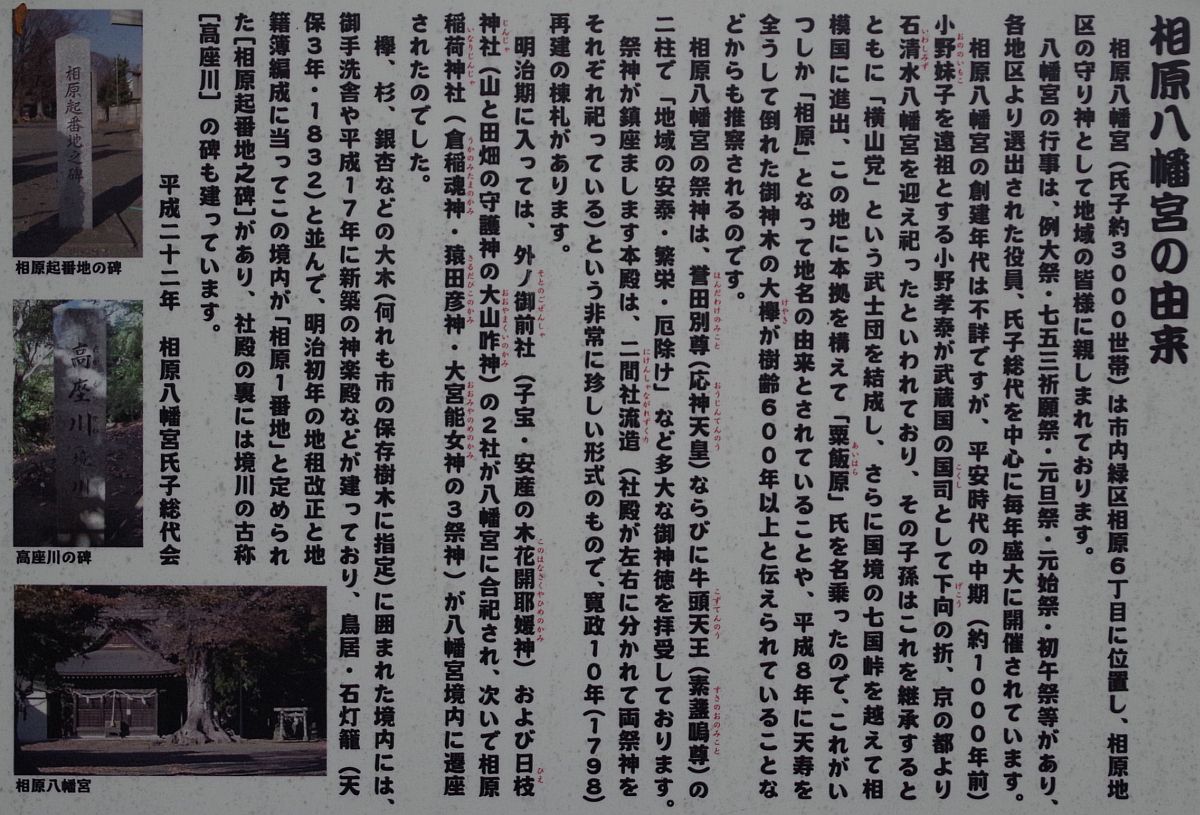 相原八幡宮の由来
相原八幡宮（氏子約３０００世帯）は市内緑区相原６丁目に位置し、相原地
区の守り神として地域の皆様に親しまれております。
八幡宮の行事は、例大祭・七五三祈願祭・元旦祭・元始祭・初午祭等があり、
各地区より選出された役員、氏子総代を中心に毎年盛大に開催されています。
相原八幡宮の創建年代は不詳ですが、平安時代の中期（約１０００年前）
小野妹子を遠祖とする小野孝泰が武蔵国の国司として下向の折、京の都より
おののいもこ
こくし
げこう
石清水八幡宮を迎え祀ったといわれており、その子孫はこれを継承すると
いわしみず
ともに「横山党」という武士団を結成し、さらに国境の七国峠を越えて相
模国に進出、この地に本拠を構えて「粟飯原」氏を名乗ったので、これがい
あいはら
つしか「相原」となって地名の由来とされていることや、平成８年に天寿を
全うして倒れた御神木の大欅が樹齢６００年以上と伝えられていることな
けやき
どからも推察されるのです。
相原八幡宮の祭神は、誉田別尊（応神天皇）ならびに牛頭天王（素盞嗚尊）の
ほんだわけのみこと
おうじんてんのう
ごずてんのう
すさのおのみこと
二柱で「地域の安泰・繁栄・厄除け」など多大な御神徳を拝受しております。
祭神が鎮座まします本殿は、二間社流造（社殿が左右に分かれて両祭神を
にけんしゃながれずくり
それぞれ祀っている）という非常に珍しい形式のもので、寛政１０年（１７９８）
再建の棟札があります。
明治期に入っては、外ノ御前社（子宝・安産の木花開耶媛神）および日枝
そとのごぜんしゃ
このはなさくやひめのかみ
ひえ
神社（山と田畑の守護神の大山咋神）の２社が八幡宮に合祀され、次いで相原
じんじゃ
おおやまくいのかみ
稲荷神社（倉稲魂神・猿田彦神・大宮能女神の３祭神）が八幡宮境内に遷座
いなりじんじゃ
うかのみたまのかみ
さるだひこのかみ
おおみやのめのかみ
されたのでした。
欅、杉、銀杏などの大木（何れも市の保存樹木に指定）に囲まれた境内には、
御手洗舎や平成１７年に新築の神楽殿などが建っており、鳥居・石灯籠（天
保３年・１８３２）と並んで、明治初年の地租改正と地
籍簿編成に当ってこの境内が「相原１番地」と定められ
た［相原起番地之碑］があり、社殿の裏には境川の古称
［高座川］の碑も建っています。
平成二十二年　相原八幡宮氏子総代会
相原起番地之碑
相原起番地の碑
高座川 境川
高座川の碑
相原八幡宮